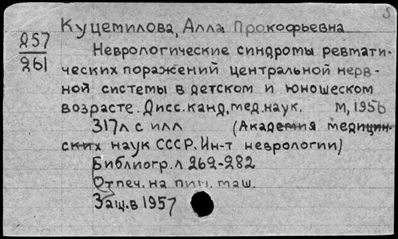 Куцемилова, Алла Прокофьевна
257
261
Неврологические синдромы ревмати-
ческих поражений центральной нерв-
ной системы в детском и юношеском
возрасте. Дисс. канд. мед. наук. М, 1956
317л с илл (Академия медицин-
ских наук СССР. Ин-т неврологии)
Библиогр. л 262-282
Отпеч. на пиш. маш.
Защ. в 1957